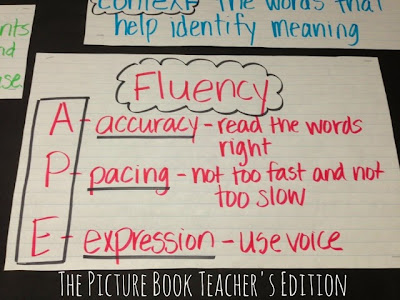 context - the words that
help identify meaning
nts
nd
Fluency
A - accuracy - read the words
right
P - pacing - not too fast and not
too slow
E - expression - use voice
THE PICTURE BOOK TEACHER'S EDITION